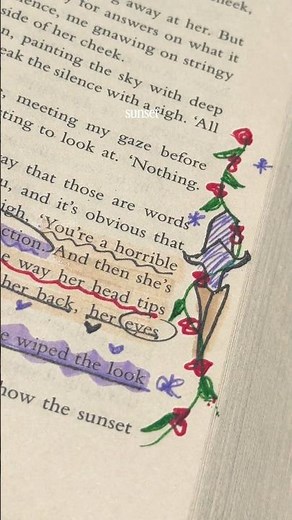 g away at her. But
y for answers on what it
ence, me gnawing on stringy
side of her cheek.
n, painting the sky with deep
eak the silence with a sigh. 'All
sunset
, meeting my gaze before
ting to look at. 'Nothing.
ay that those are words
u, and it's obvious that
igh. 'You're a horrible
ction. And then she's
e way her head tips
her back, her eyes
e wiped the look
how the sunset